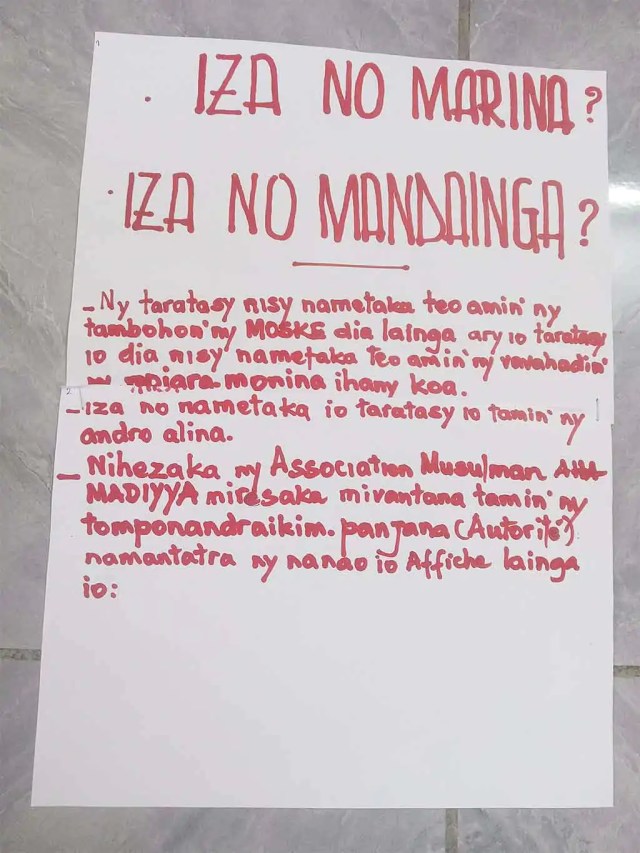 1
. IZA NO MARINA?
. IZA NO MANDAINGA?
- Ny taratasy nisy nametaka teo amin' ny
tambohon' ny MOSKE dia lainga ary io taratasy
io dia nisy nametaka teo amin' ny vavahadin'
ny mpiara-monina ihany koa.
2
- iza no nametaka io taratasy io tamin' ny
andro alina.
- Nihezaka ny Association Musulman AHA
MADIYYA miresaka mivantana tamin' ny
tomponandraikim-panjana (Autorité)
namantatra ny nanao io Affiche lainga
io: